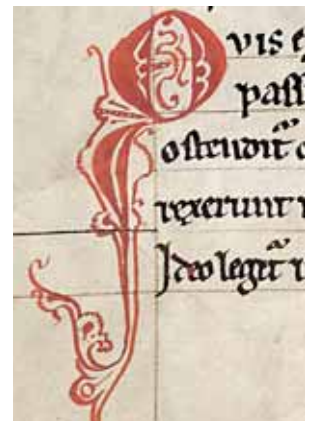 QVIS e
paſſ
oſtendit᷑
rexerunt
Ideo legit᷑